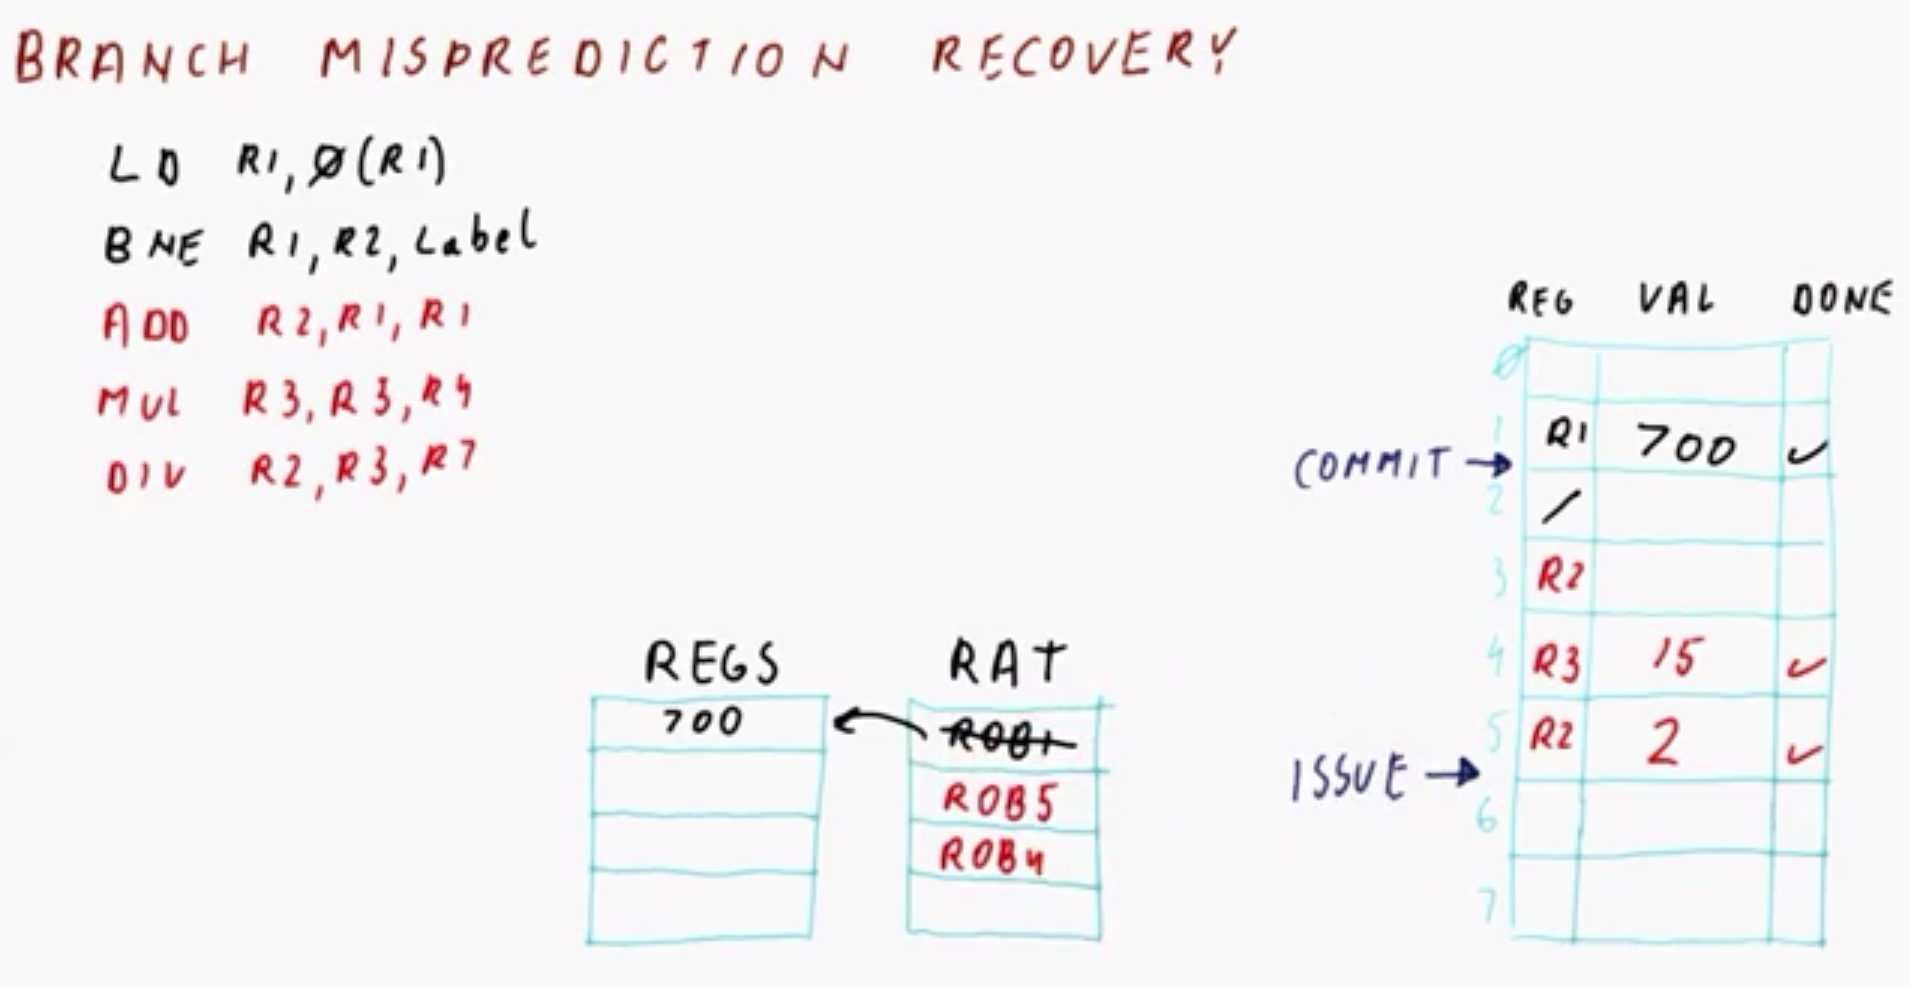 BRANCH MISPREDICTION RECOVERY
LD R1, Ø(R1)
BNE R1, R2, Label
ADD R2, R1, R1
MUL R3, R3, R4
DIV R2, R3, R7
REGS RAT
700 ROB1
ROB5
ROB4
REG VAL DONE
Ø
1 R1 700 ✓
COMMIT →
2 /
3 R2
4 R3 15 ✓
5 R2 2 ✓
ISSUE →
6
7